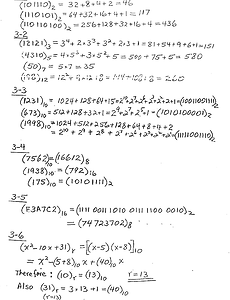 (101110)₂ = 32+8+4+2 = 46
(1110101)₂ = 64+32+16+4+1 = 117
(110110100)₂ = 256+128+32+16+4 = 436
3-2
(12121)₃ = 3⁴+2×3³+3²+2×3+1 = 81+54+9+6+1 = 151
(4310)₅ = 4×5³+3×5²+5 = 500+75+5 = 580
(50)₇ = 5×7 = 35
(198)₁₂ = 12²+9×12+8 = 144+108+8 = 260
3-3
(1231)₁₀ = 1024+128+64+15 = 2¹⁰+2⁷+2⁶+2³+2²+2+1 = (10011001111)₂
(673)₁₀ = 512+128+32+1 = 2⁹+2⁷+2⁵+1 = (1010100001)₂
(1998)₁₀ = 1024+512+256+128+64+8+4+2
= 2¹⁰+2⁹+2⁸+2⁷+2⁶+2³+2²+2¹ = (11111001110)₂
3-4
(7562)₁₀ = (16612)₈
(1938)₁₀ = (792)₁₆
(175)₁₀ = (10101111)₂
3-5
(F3A7C2)₁₆ = (1111 0011 1010 0111 1100 0010)₂
= (74723702)₈
3-6
(x²-10x+31)ᵣ = [(x-5)(x-8)]₁₀
= x²-(5+8)₁₀x+(40)₁₀
Therefore: (10)ᵣ = (13)₁₀ r=13
Also (31)ᵣ = 3×13+1 = (40)₁₀
(r=13)